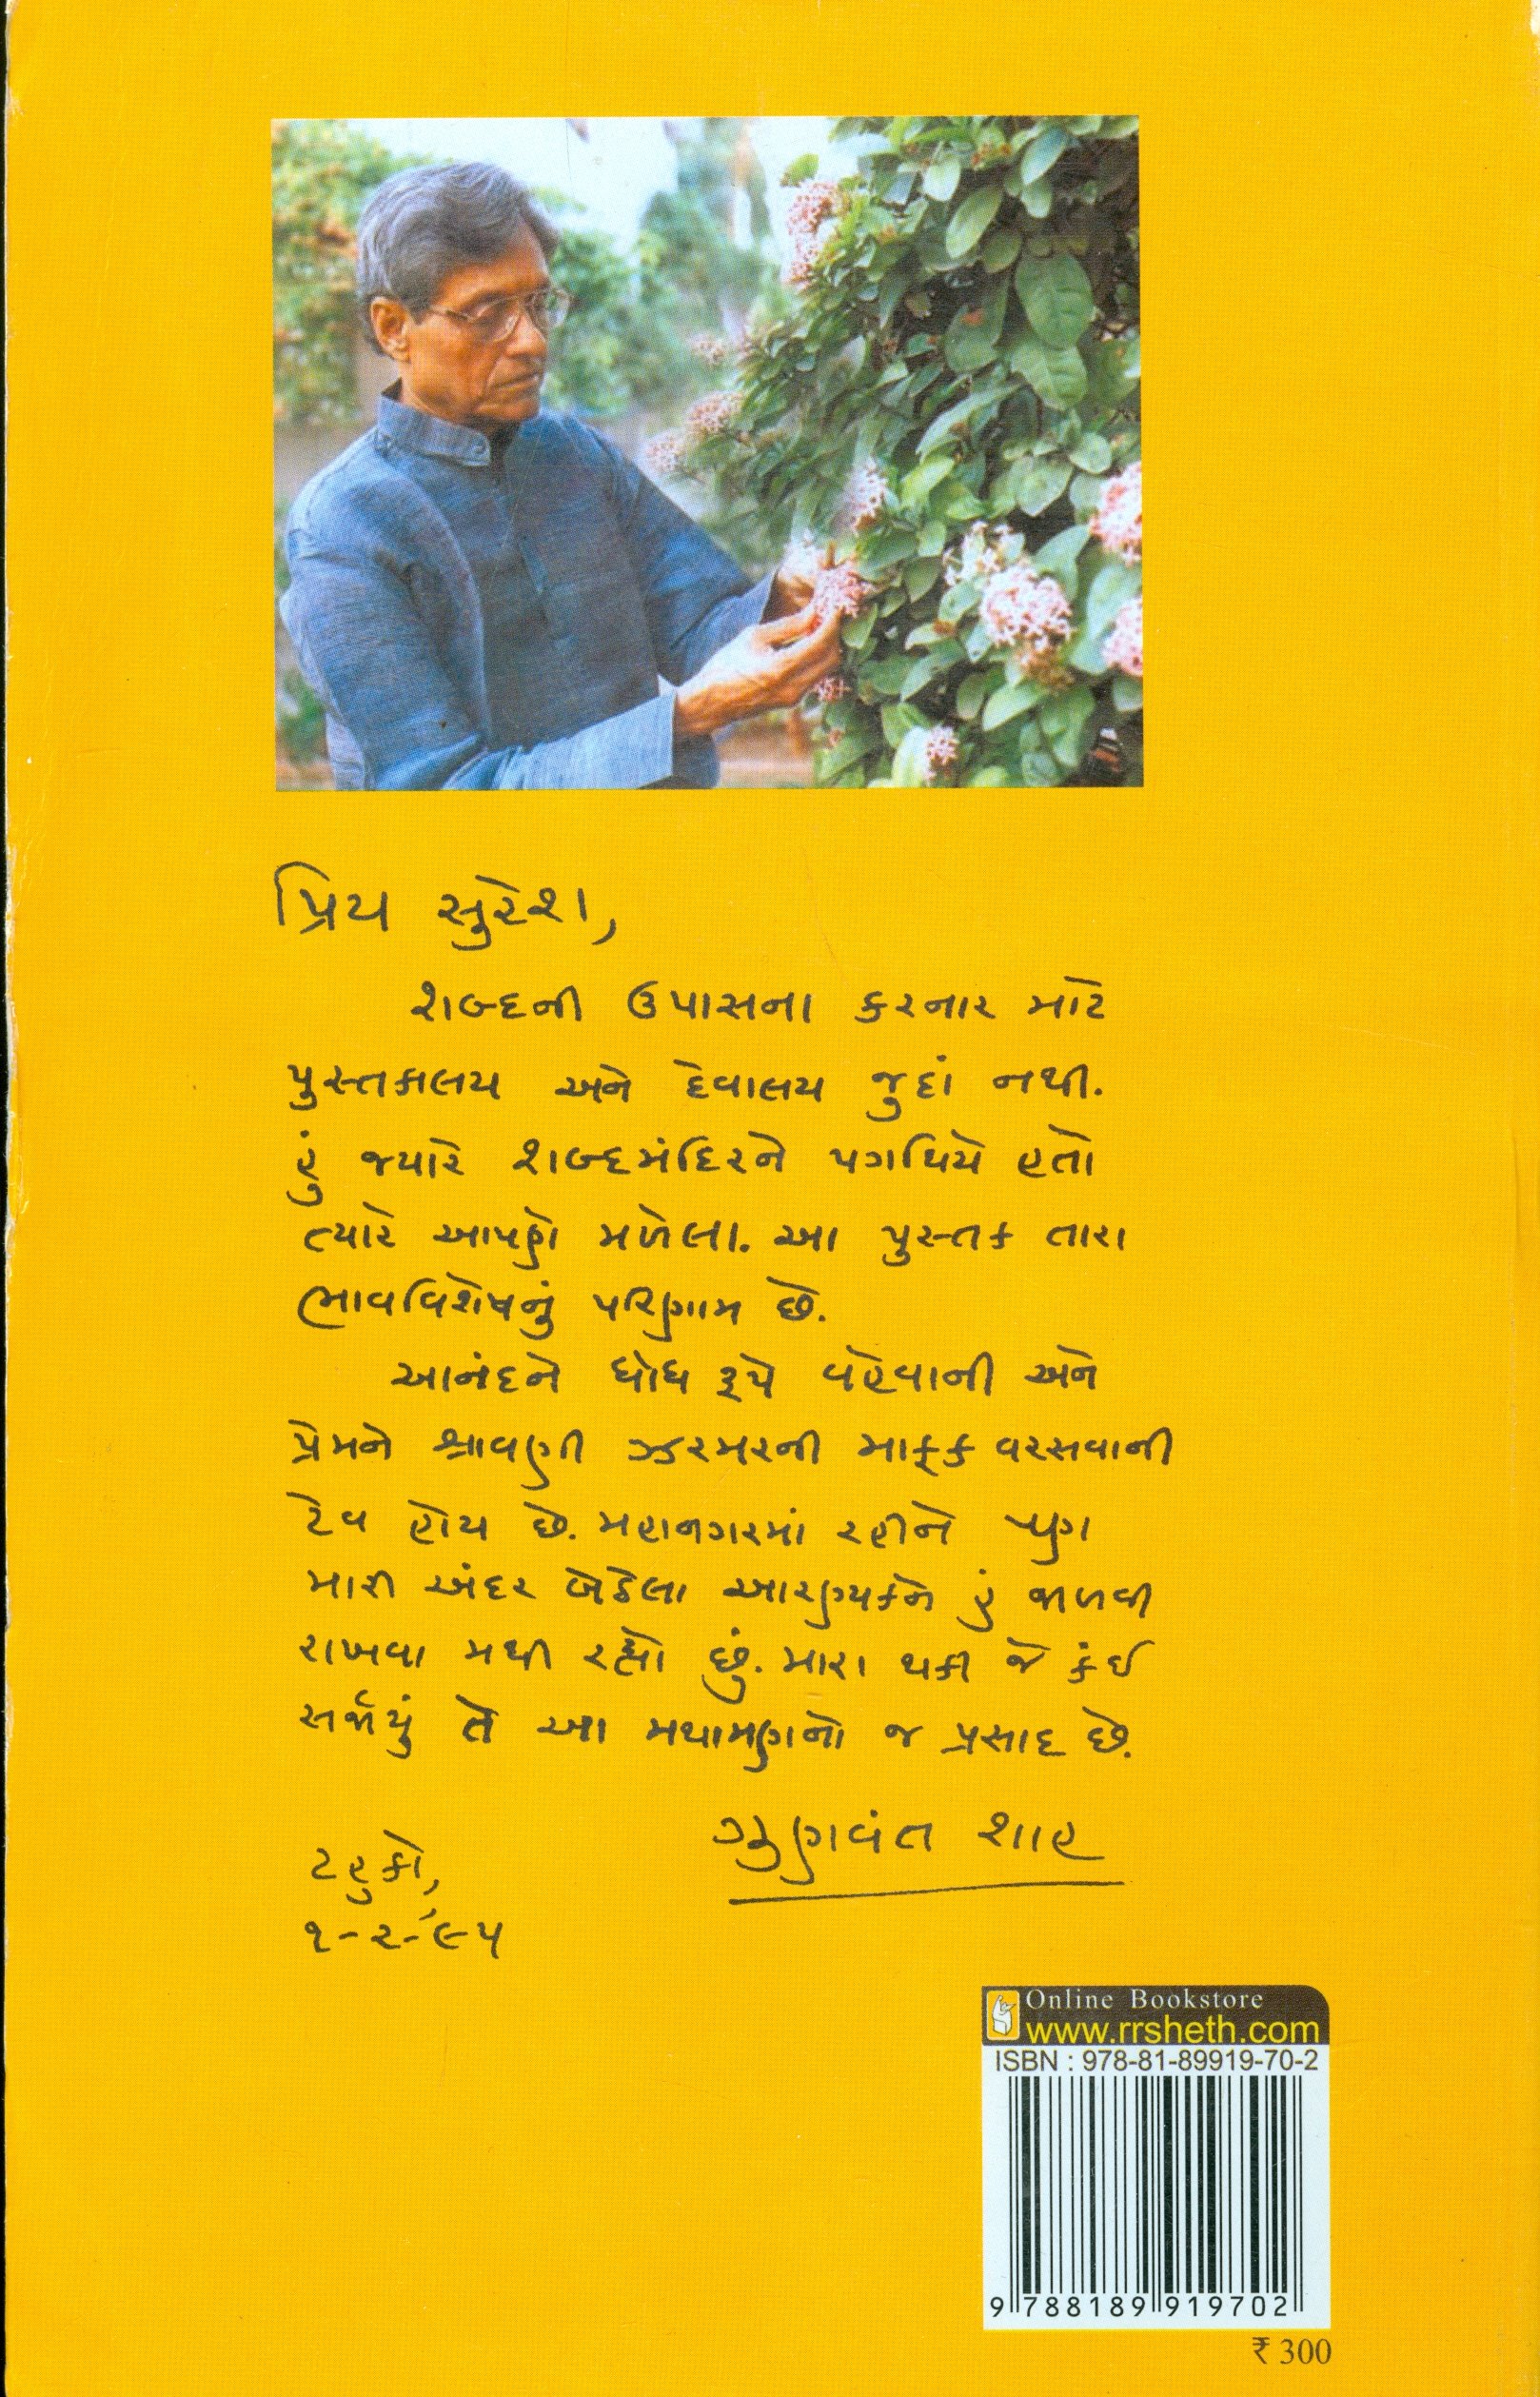 પ્રિય સુરેશ,
શબ્દની ઉપાસના કરનાર માટે
પુસ્તકાલય અને દેવાલય જુદાં નથી.
હું જ્યારે શબ્દમંદિરને પગથિયે હતો
ત્યારે આપણે મળેલા. આ પુસ્તક તારા
ભાવવિશેષનું પરિણામ છે.
આનંદને ધોધ રૂપે વહેવાની અને
પ્રેમને શ્રાવણી ઝરમરની માફક વરસવાની
ટેવ હોય છે. મહાનગરમાં રહીને પણ
મારી અંદર બેઠેલા આરણ્યકને હું જાળવી
રાખવા મથી રહ્યો છું. મારા થકી જે કંઈ
સર્જાયું તે આ મથામણનો જ પ્રસાદ છે.
ગુણવંત શાહ
ટહુકો,
૧-૨-'૯૫
Online Bookstore
www.rrsheth.com
ISBN : 978-81-89919-70-2
9 788189 919702
₹ 300